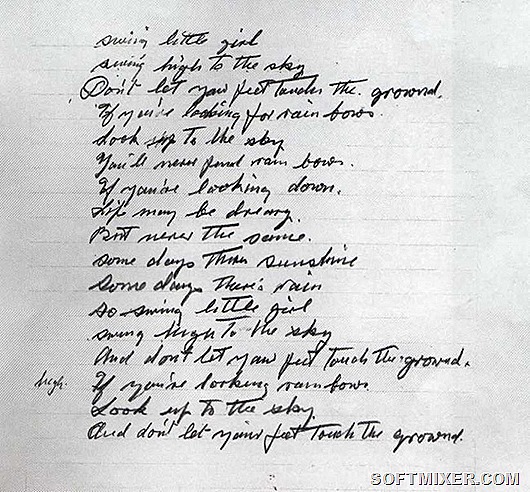 swing little girl
swing high to the sky
Don't let your feet touch the grownd.
If you're looking for rain bows.
Look up to the sky
You'll never find rain bows.
If you're looking down.
Life may be dreary.
But never the same.
some days there sunshine
some days there's rain
so swing little girl
swing high to the sky
And don't let your feet touch the grownd.
high. If you're looking rainbows
Look up to the sky.
And don't let your feet touch the grownd.
SOFTMIXER.COM